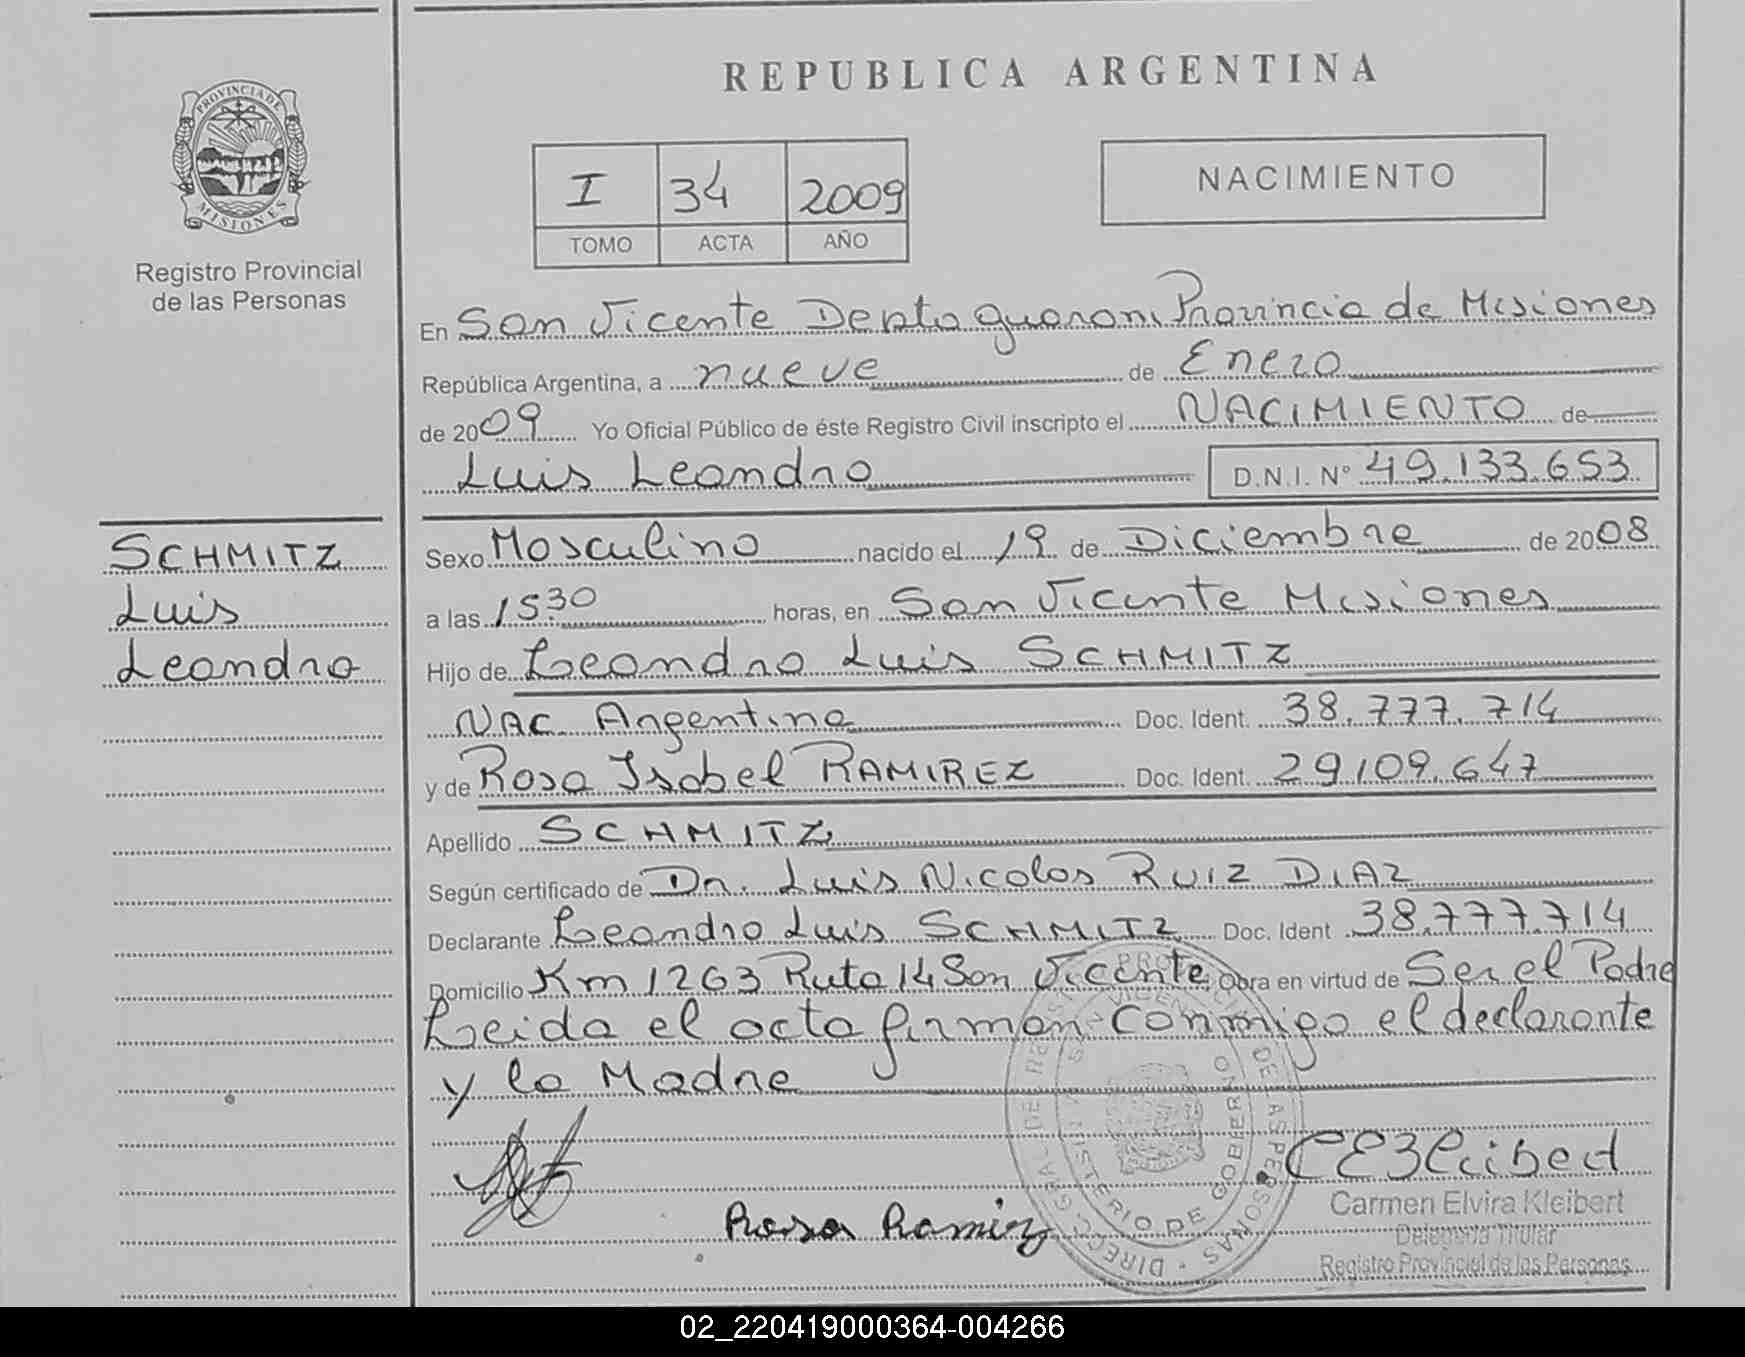 REPUBLICA ARGENTINA
PROVINCIA DE
MISIONES
Registro Provincial
de las Personas
I 34 2009
TOMO ACTA AÑO
NACIMIENTO
En San Vicente Depto guarani Provincia de Misiones
República Argentina, a nueve de Enero
de 2009 Yo Oficial Público de éste Registro Civil inscripto el NACIMIENTO de
Luis Leandro D.N.I. Nº 49.133.653
SCHMITZ
Luis
Leandro
Sexo Masculino nacido el 19 de Diciembre de 2008
a las 15:30 horas, en San Vicente Misiones
Hijo de Leandro Luis SCHMITZ
NAC Argentina Doc. Ident. 38.777.714
y de Rosa Isabel RAMIREZ Doc. Ident. 29109.647
Apellido SCHMITZ
Según certificado de Dr. Luis Nicolas RUIZ DIAZ
Declarante Leandro Luis SCHMITZ Doc. Ident 38.777.714
Domicilio Km 1263 Ruta 14 San Vicente Obra en virtud de Ser el Padre
Leida el acta firman conmigo el declarante
y la Madre
Rosa Ramirez
Carmen Elvira Kleibert
Delegada Titular
Registro Provincial de las Personas
MINISTERIO DE GOBIERNO
02_220419000364-004266